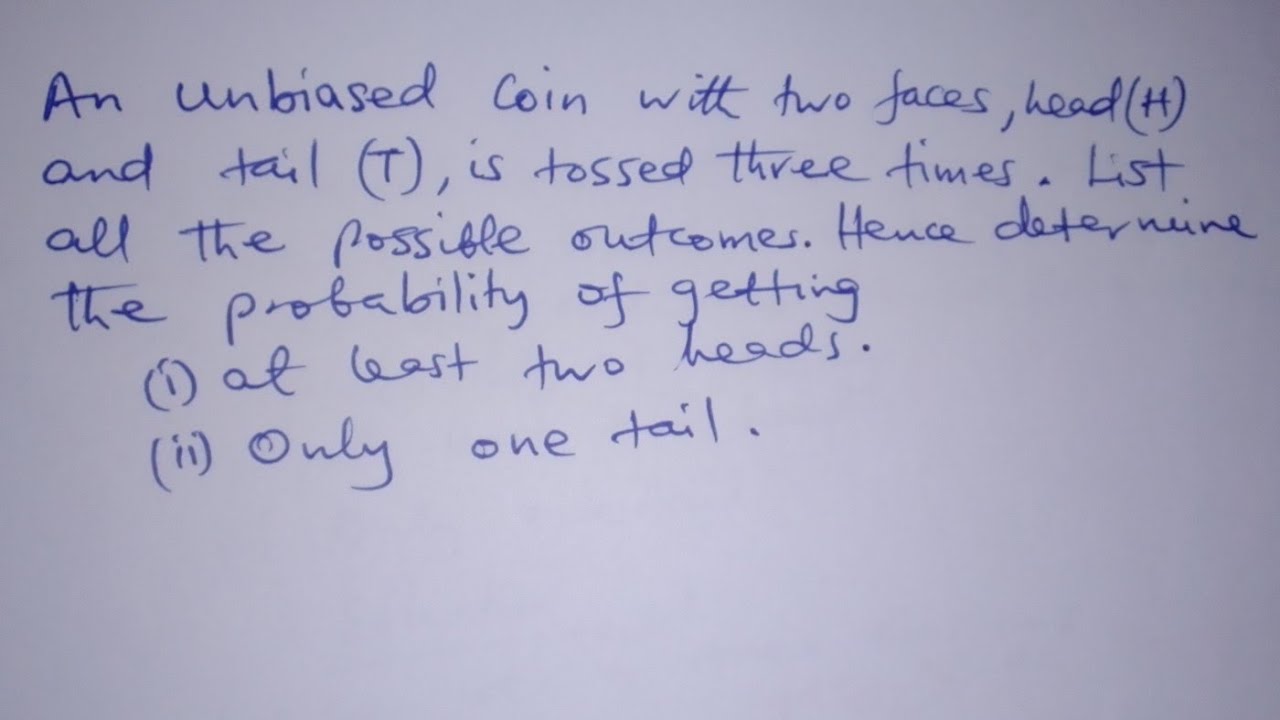 An unbiased coin with two faces, head(H)
and tail (T), is tossed three times. List
all the possible outcomes. Hence determine
the probability of getting
(i) at least two heads.
(ii) Only one tail.